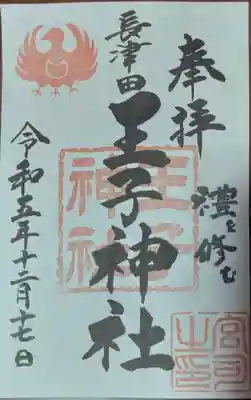 奉拝
禮を修む
長津田
王子神社
令和五年十二月十七日
王子
神社
宮司
之印